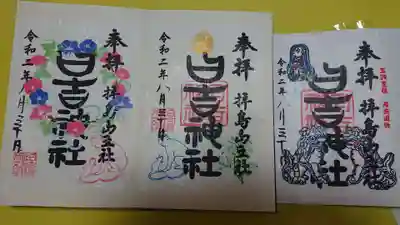 奉拝
拝島山王社
日吉神社
令和二年八月三十日
奉拝
拝島山王社
日吉神社
令和二年八月三十日
奉拝
拝島山王社
日吉神社
令和二年八月三十